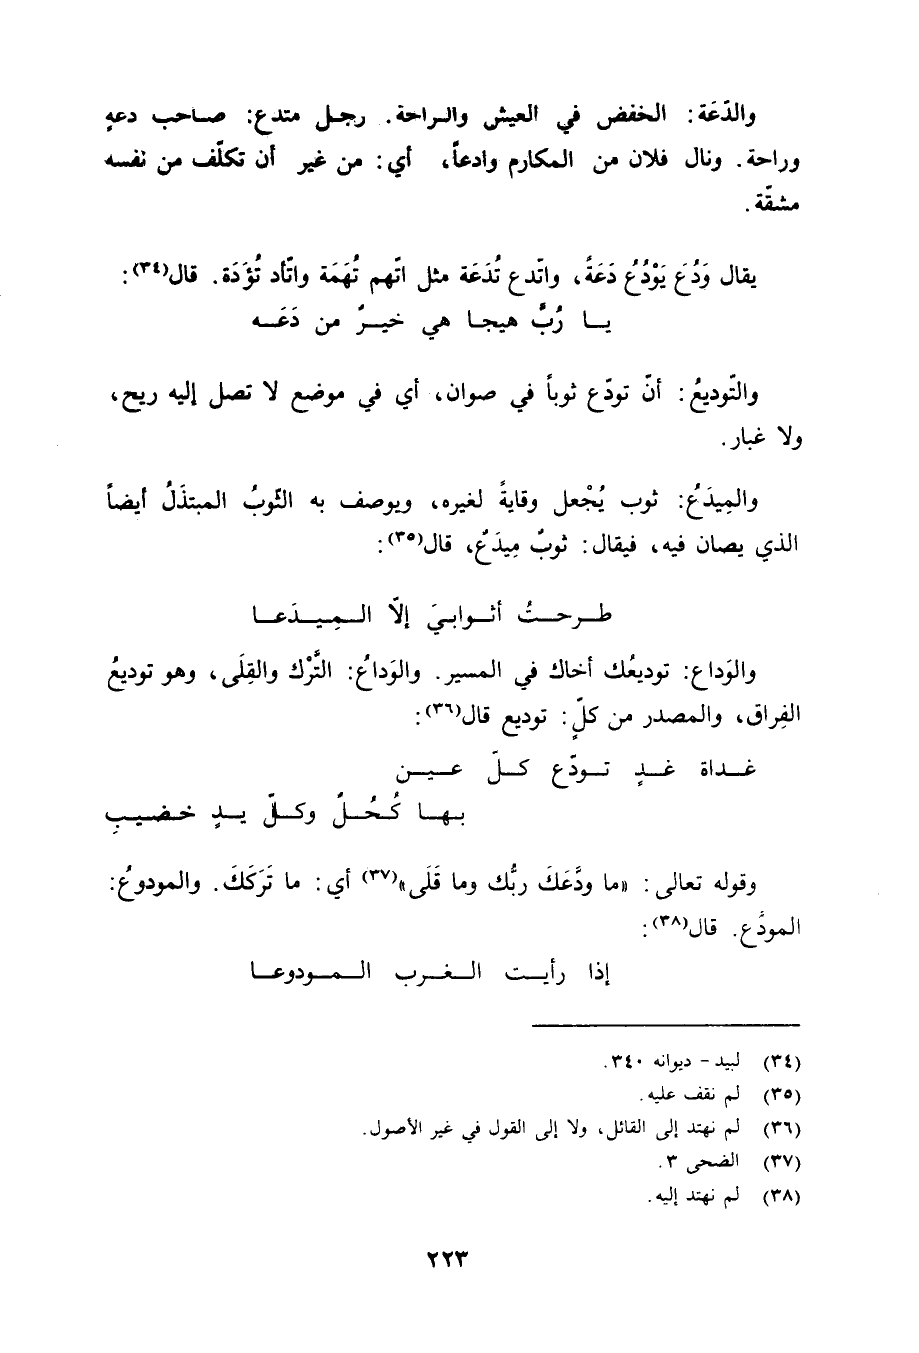 والدّعَة: الخفض في العيش والراحة. رجل متدع: صاحب دعةٍ
وراحة. ونال فلان من المكارم وادعاً، أي: من غير أن تكلّف من نفسه
مشقّة.
يقال وَدُع يَوْدُعُ دَعَةً، واتّدع تُدَعَة مثل اتّهم تُهَمَة واتّأد تُؤَدَة. قال(٣٤):
يا رُبَّ هيجا هي خيرٌ من دَعَه
والتّوديعُ: أنّ تودّع ثوباً في صوان، أي في موضع لا تصل إليه ريح،
ولا غبار.
والمِيدَعُ: ثوب يُجْعل وقايةً لغيره، ويوصف به الثّوبُ المبتذَلُ أيضاً
الذي يصان فيه، فيقال: ثوبٌ مِيدَعٌ، قال(٣٥):
طرحتُ أثوابيَ إلاّ المِيدَعا
والوَداع: توديعُك أخاك في المسير. والوَداعُ: التَّرْك والقِلَى، وهو توديعُ
الفِراق، والمصدر من كلٍّ: توديع قال(٣٦):
غداة غدٍ تودّع كلّ عين
بها كُحُلٌ وكلّ يدٍ خضيبِ
وقوله تعالى: «ما ودَّعَكَ ربُّك وما قَلَى»(٣٧) أي: ما تَرَكَكَ. والمودوعُ:
المودَّع. قال(٣٨):
إذا رأيت الغرب المودوعا
(٣٤) لبيد - ديوانه ٣٤٠.
(٣٥) لم نقف عليه.
(٣٦) لم نهتد إلى القائل، ولا إلى القول في غير الأصول.
(٣٧) الضحى ٣.
(٣٨) لم نهتد إليه.
٢٢٣